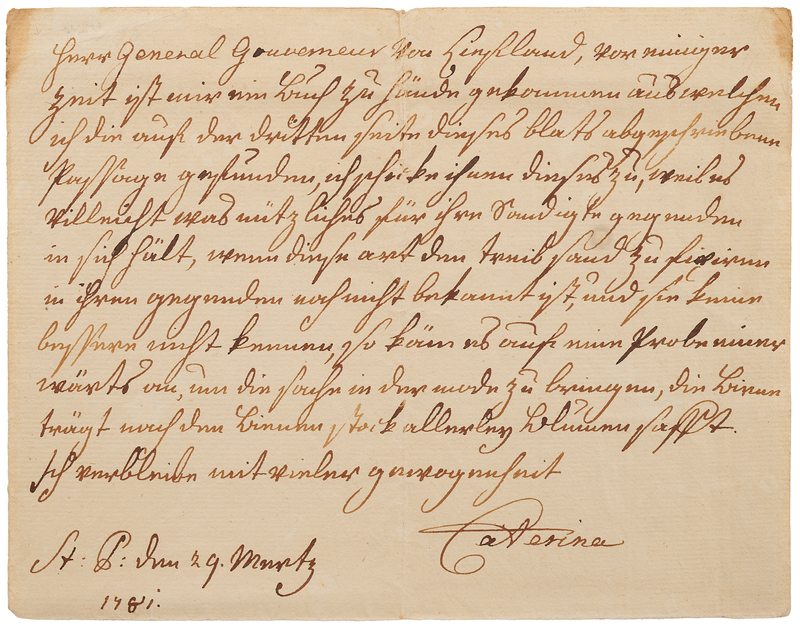 Herr General Gouverneur von Liefland, vor einiger
Zeit ist mir ein Buch zu hände gekommen aus welchen
ich die auf der dritten seite dieses blats abgeschriebene
Passage gefunden, ich schicke ihnen dieses zu, weil es
villeicht was nützliches für ihre Sandigte gegenden
in sich hält, wenn diese art den treib sand zu figiren
in ihren gegenden noch nicht bekannt ist, und sie keine
bessere nicht kennen, so käm es auf eine Probe einer
wärts an, um die sache in der mode zu bringen, die Biene
trägt nach den Bienen stock allerley Blumen safft.
Ich verbleibe mit vieler gewogenheit
Caterina
St: P: den 29. Mertz
1781.